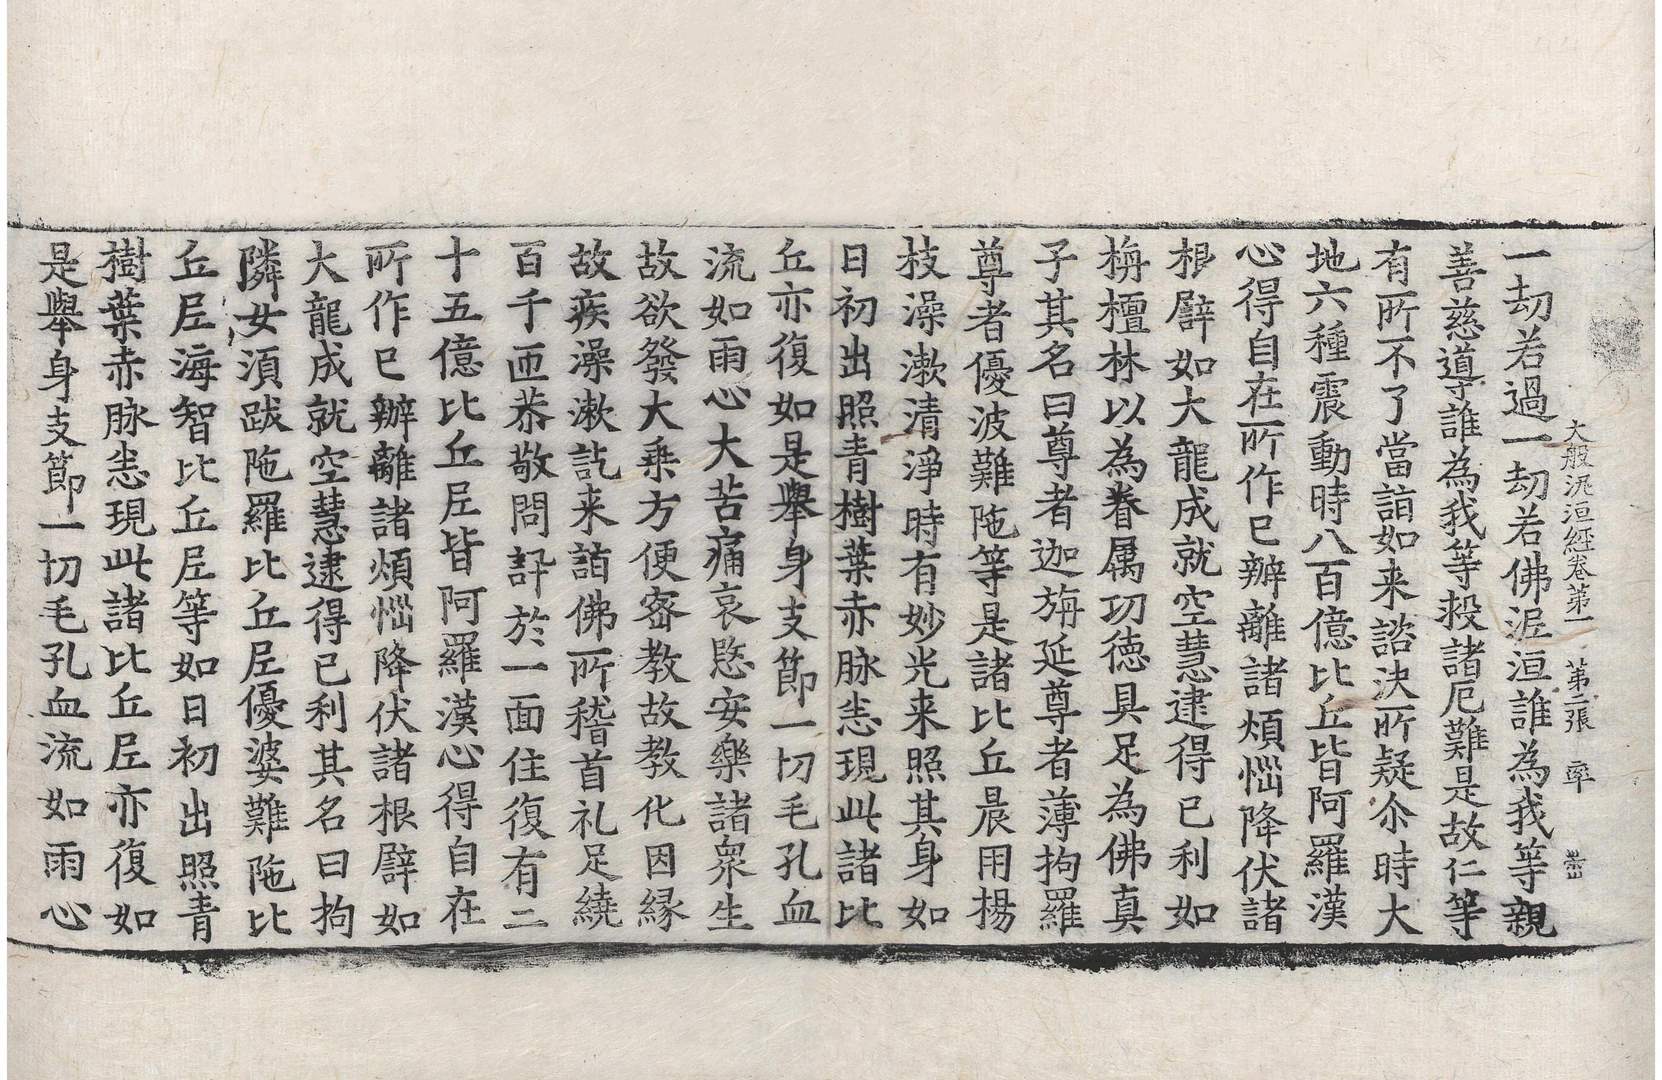 大般泥洹經卷第一 第二張 率
一劫若過一劫若佛泥洹誰為我等親
善慈導誰為我等救諸厄難是故仁等
有所不了當詣如来諮決所疑尒時大
地六種震動時八百億比丘皆阿羅漢
心得自在所作已辦離諸煩惱降伏諸
根譬如大龍成就空慧逮得已利如
栴檀林以為眷属功徳具足為佛真
子其名曰尊者迦旃延尊者薄拘羅
尊者優波難陁等是諸比丘晨用楊
枝澡漱清淨時有妙光来照其身如
日初出照青樹葉赤脉悉現此諸比
丘亦復如是舉身支節一切毛孔血
流如雨心大苦痛哀愍安樂諸衆生
故欲發大乗方便宻教故教化因縁
故疾澡漱訖来詣佛所稽首礼足繞
百千匝恭敬問訊於一面住復有二
十五億比丘尼皆阿羅漢心得自在
所作已辦離諸煩惱降伏諸根譬如
大龍成就空慧逮得已利其名曰拘
隣女湏跋陁羅比丘尼優婆難陁比
丘尼海智比丘尼等如日初出照青
樹葉赤脉悉現此諸比丘尼亦復如
是舉身支節一切毛孔血流如雨心